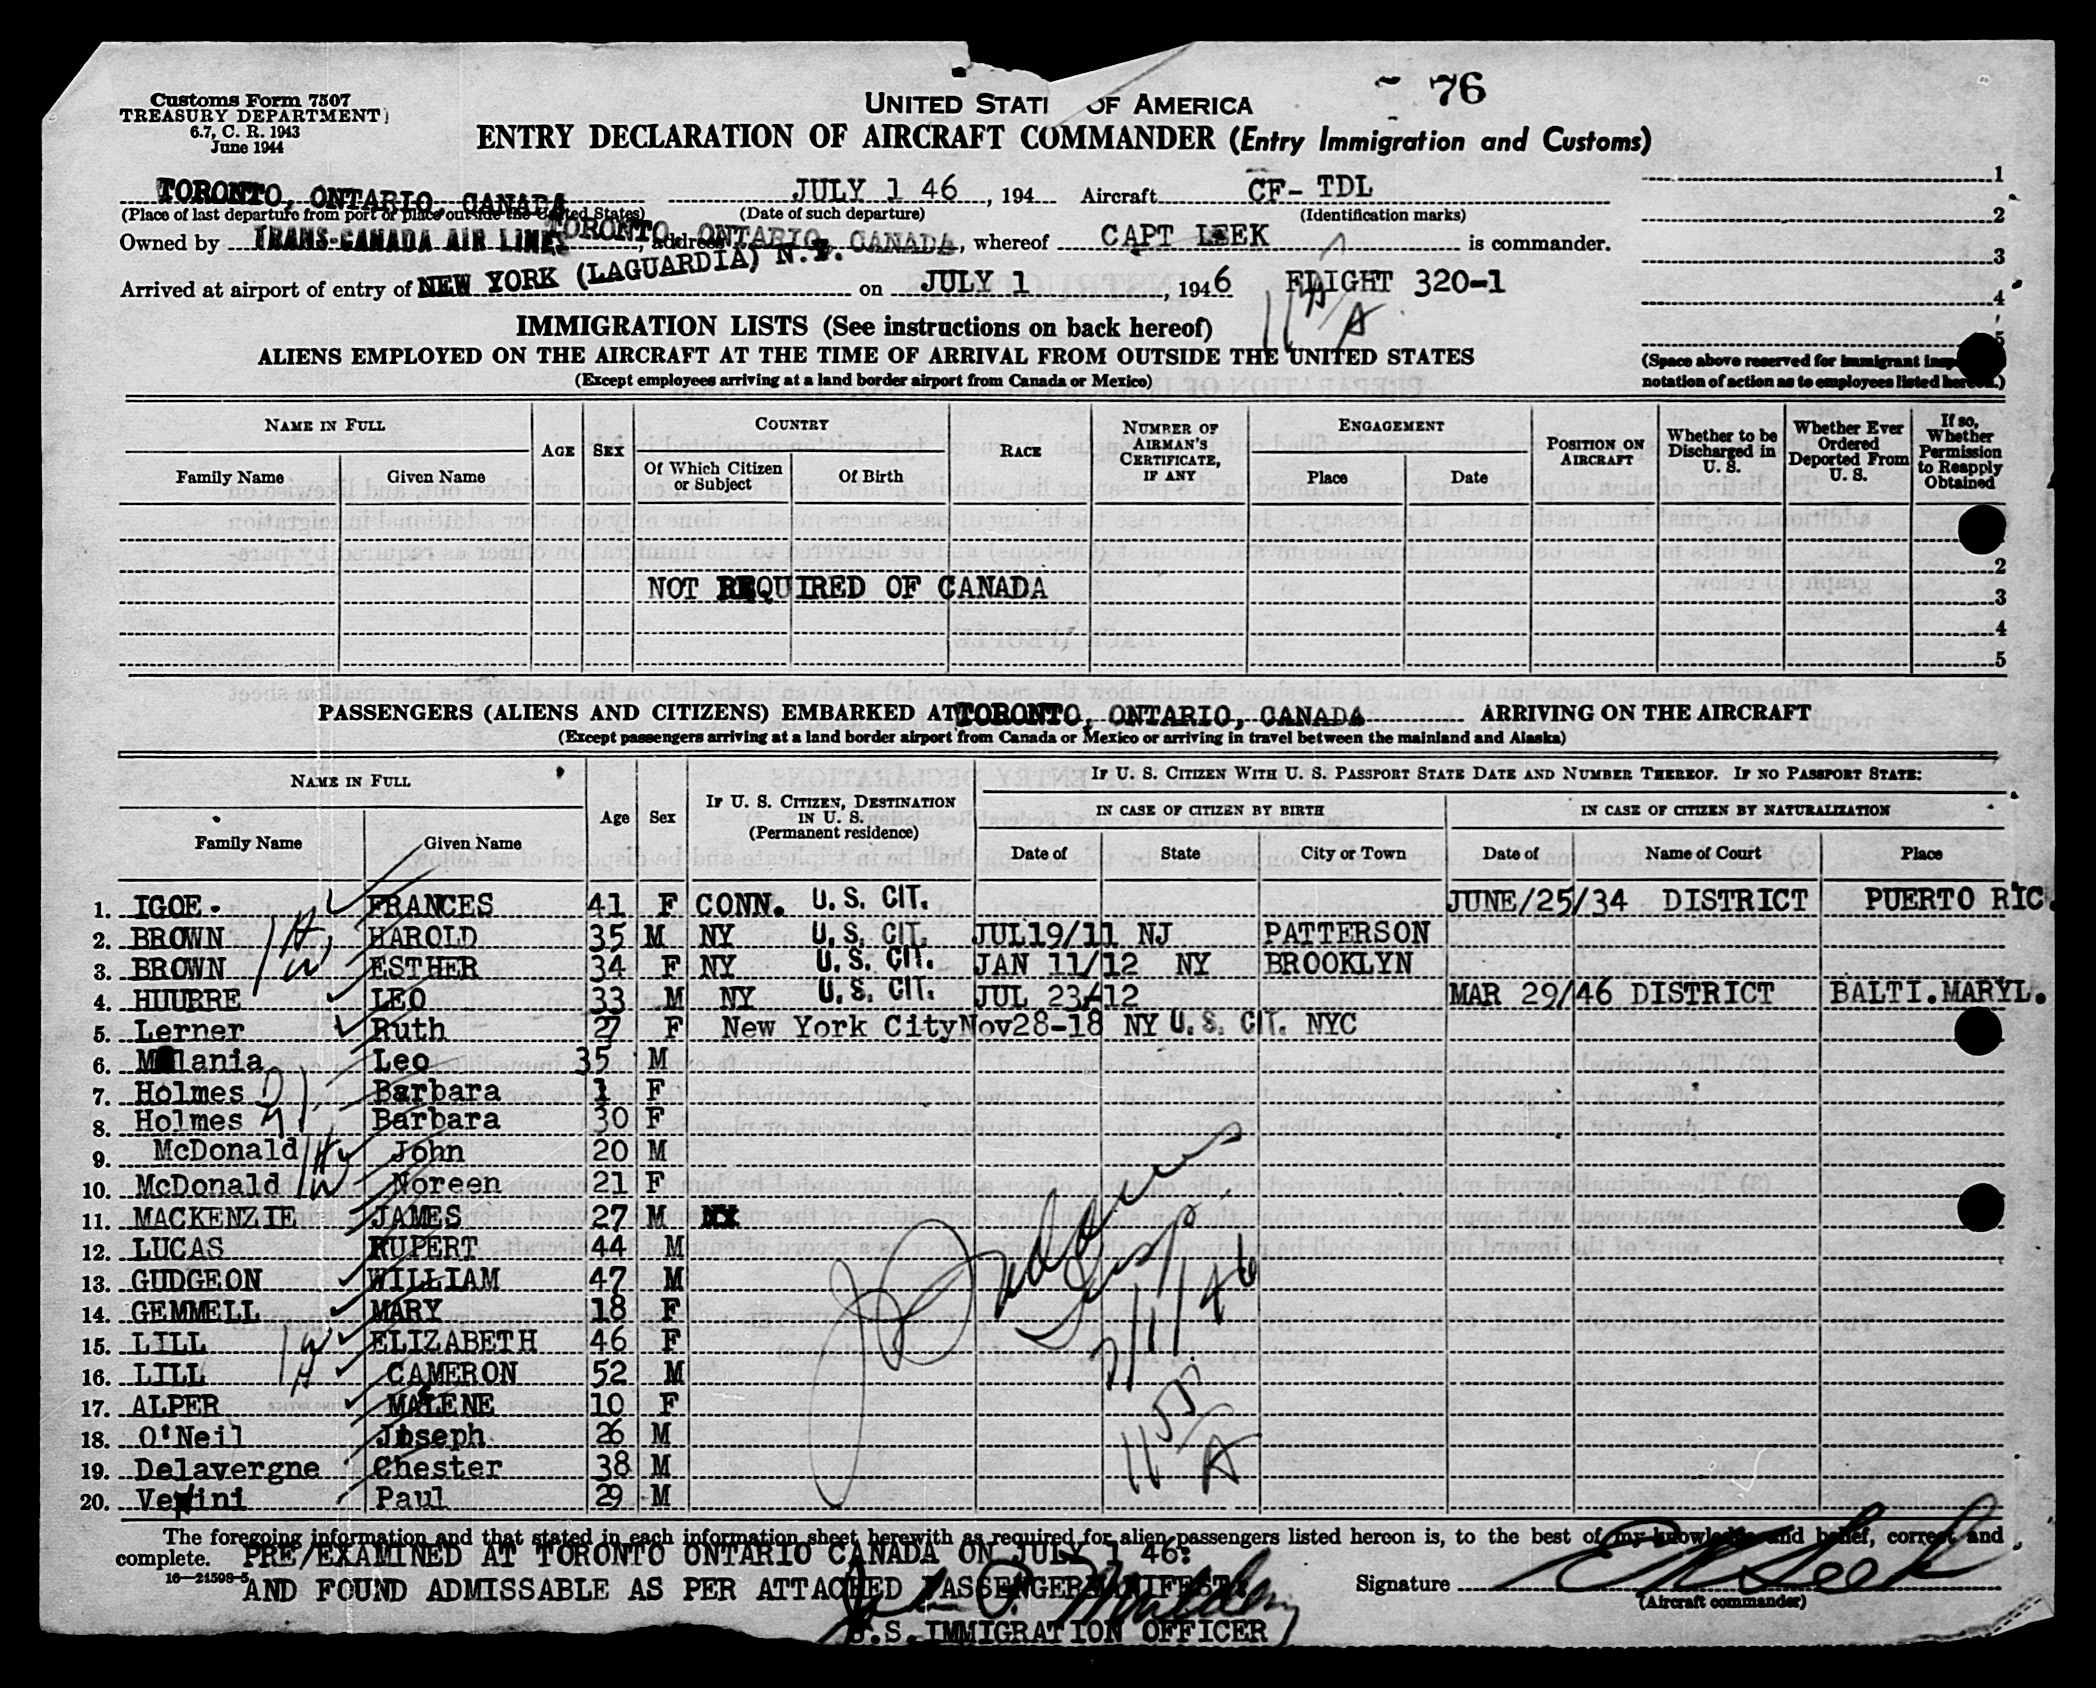 76
Customs Form 7507
TREASURY DEPARTMENT
6.7, C. R. 1943
June 1944
UNITED STATI OF AMERICA
ENTRY DECLARATION OF AIRCRAFT COMMANDER (Entry Immigration and Customs)
TORONTO, ONTARIO, CANADA JULY 1 46, 194 Aircraft CF-TDL
(Place of last departure from port or place outside the United States) (Date of such departure) (Identification marks)
Owned by TRANS-CANADA AIR LINES, address TORONTO, ONTARIO, CANADA, whereof CAPT LEEK is commander.
Arrived at airport of entry of NEW YORK (LAGUARDIA) N.Y. on JULY 1, 1946 FLIGHT 320-1
1
2
3
4
5
IMMIGRATION LISTS (See instructions on back hereof)
ALIENS EMPLOYED ON THE AIRCRAFT AT THE TIME OF ARRIVAL FROM OUTSIDE THE UNITED STATES
(Except employees arriving at a land border airport from Canada or Mexico)
(Space above reserved for immigrant
notation of action as to employees listed hereon.)
NAME IN FULL AGE SEX COUNTRY RACE NUMBER OF AIRMAN'S CERTIFICATE, IF ANY ENGAGEMENT POSITION ON AIRCRAFT Whether to be Discharged in U. S. Whether Ever Ordered Deported From U. S. If so, Whether Permission to Reapply Obtained
Family Name Given Name Of Which Citizen or Subject Of Birth Place Date
2
NOT REQUIRED OF CANADA 3
4
5
PASSENGERS (ALIENS AND CITIZENS) EMBARKED AT TORONTO, ONTARIO, CANADA ARRIVING ON THE AIRCRAFT
(Except passengers arriving at a land border airport from Canada or Mexico or arriving in travel between the mainland and Alaska)
NAME IN FULL Age Sex IF U. S. CITIZEN, DESTINATION IN U. S. (Permanent residence) IF U. S. CITIZEN WITH U. S. PASSPORT STATE DATE AND NUMBER THEREOF. IF NO PASSPORT STATE:
IN CASE OF CITIZEN BY BIRTH IN CASE OF CITIZEN BY NATURALIZATION
Family Name Given Name Date of State City or Town Date of Name of Court Place
1. IGOE FRANCES 41 F CONN. U. S. CIT. JUNE/25/34 DISTRICT PUERTO RIC.
2. BROWN HAROLD 35 M NY U. S. CIT. JUL19/11 NJ PATTERSON
3. BROWN ESTHER 34 F NY U. S. CIT. JAN 11/12 NY BROOKLYN
4. HUURRE LEO 33 M NY U. S. CIT. JUL 23/12 MAR 29/46 DISTRICT BALTI.MARYL.
5. Lerner Ruth 27 F New York City Nov28-18 NY U. S. CIT. NYC
6. Leo 35 M
7. Holmes Barbara 1 F
8. Holmes Barbara 30 F
9. McDonald John 20 M
10. McDonald Noreen 21 F
11. MACKENZIE JAMES 27 M
12. LUCAS RUPERT 44 M
13. GUDGEON WILLIAM 47 M
14. GEMMELL MARY 18 F
15. LILL ELIZABETH 46 F
16. LILL CAMERON 52 M
17. ALPER 10 F
18. O'Neil Joseph 26 M
19. Delavergne Chester 38 M
20. Paul 29 M
7/1/46
The foregoing information and that stated in each information sheet herewith as required for alien passengers listed hereon is, to the best of my knowledge and belief, correct and
complete. PRE/EXAMINED AT TORONTO ONTARIO CANADA ON JULY 1 46:
16-21598-5 AND FOUND ADMISSABLE AS PER ATTACHED PASSENGER MANIFEST. Signature
(Aircraft commander)
U.S. IMMIGRATION OFFICER